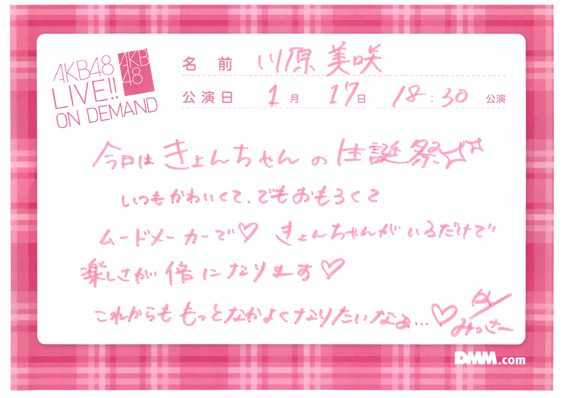 AKB48
LIVE!!
ON DEMAND
AKB
48
名前 川原美咲
公演日 1月 17日 18:30 公演
今日は きょんちゃんの 生誕祭☆☆
いつもかわいくて、でもおもろくて
ムードメーカーで♡ きょんちゃんがいるだけで
楽しさが 倍になります♡
これからも もっとなかよくなりたいなぁ...♡
みっさー
DMM.com